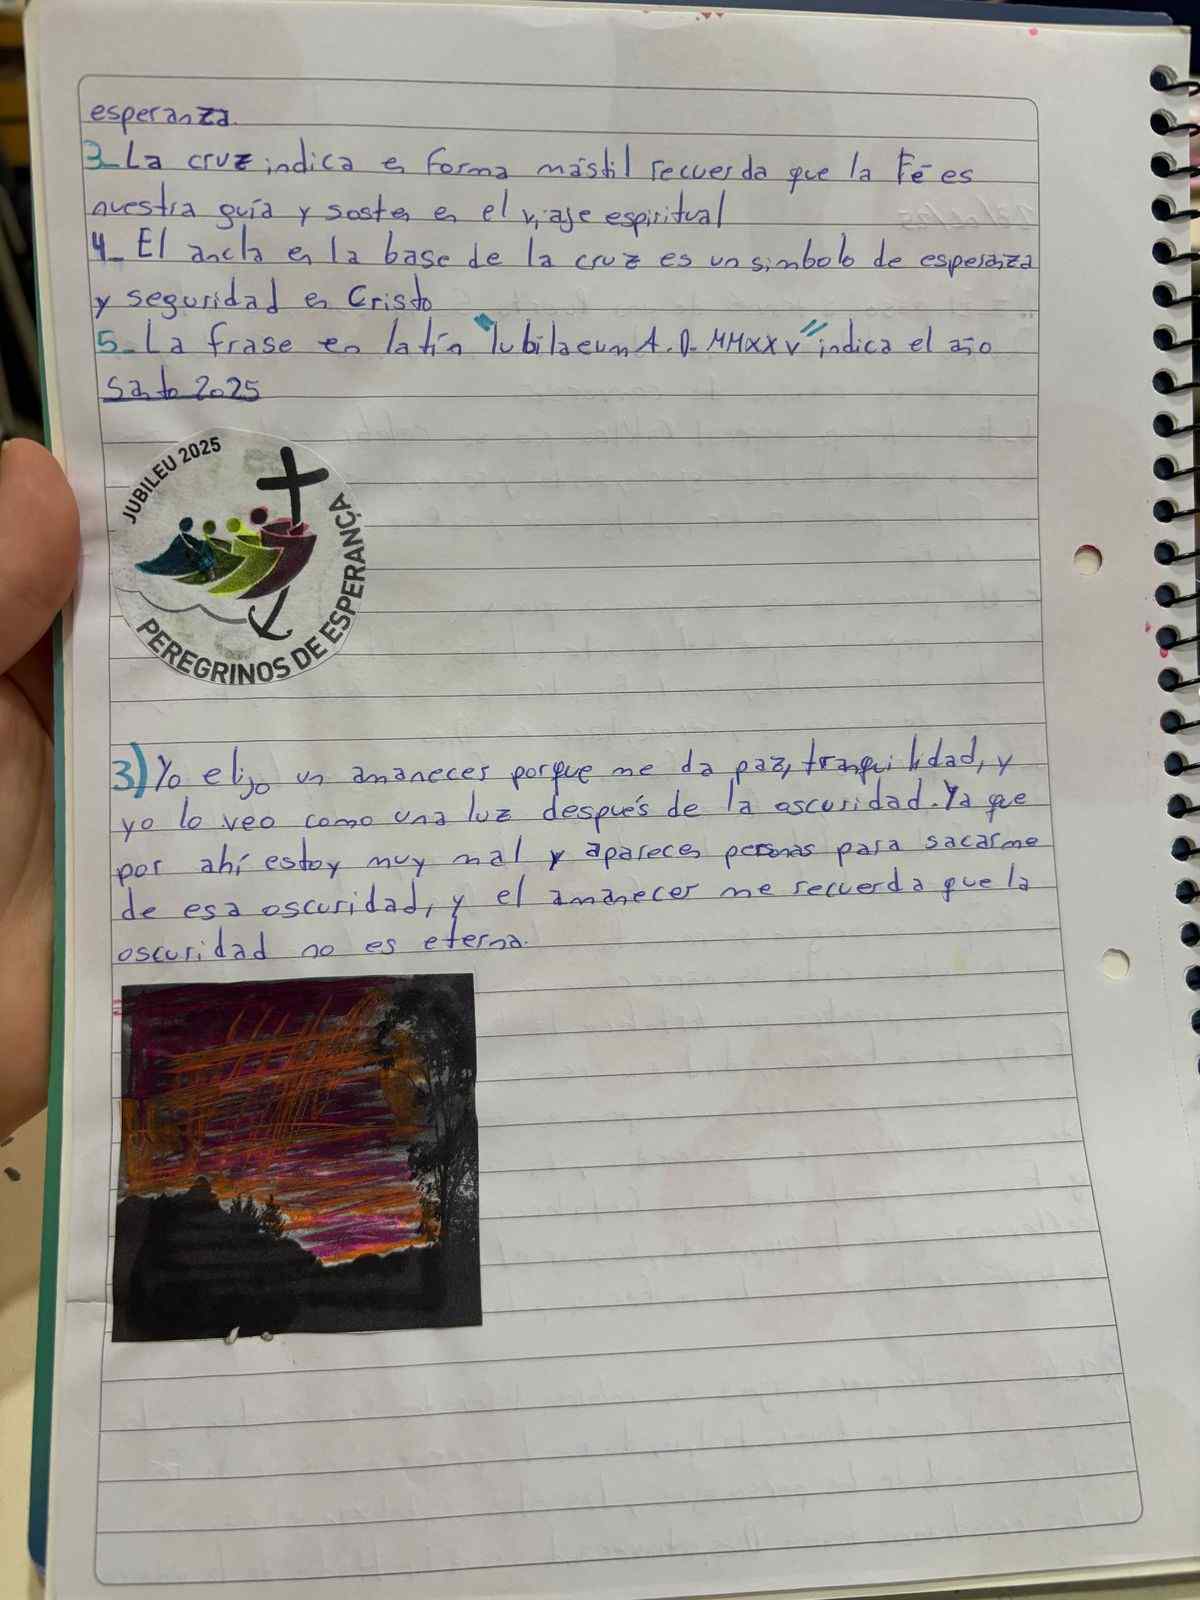 esperanza.
3_La cruz indica en forma mástil recuerda que la Fé es
nuestra guía y sosten en el viaje espiritual
4_ El ancla en la base de la cruz es un simbolo de esperanza
y seguridad en Cristo
5_La frase en latín "Iubilaeum A.D. MMXXV" indica el año
Santo 2025
JUBILEU 2025
PEREGRINOS DE ESPERANÇA
3) Yo elijo un amanecer porque me da paz, tranquilidad, y
yo lo veo como una luz después de la oscuridad. Ya que
por ahí estoy muy mal y aparecen personas para sacarme
de esa oscuridad, y el amanecer me recuerda que la
oscuridad no es eterna.